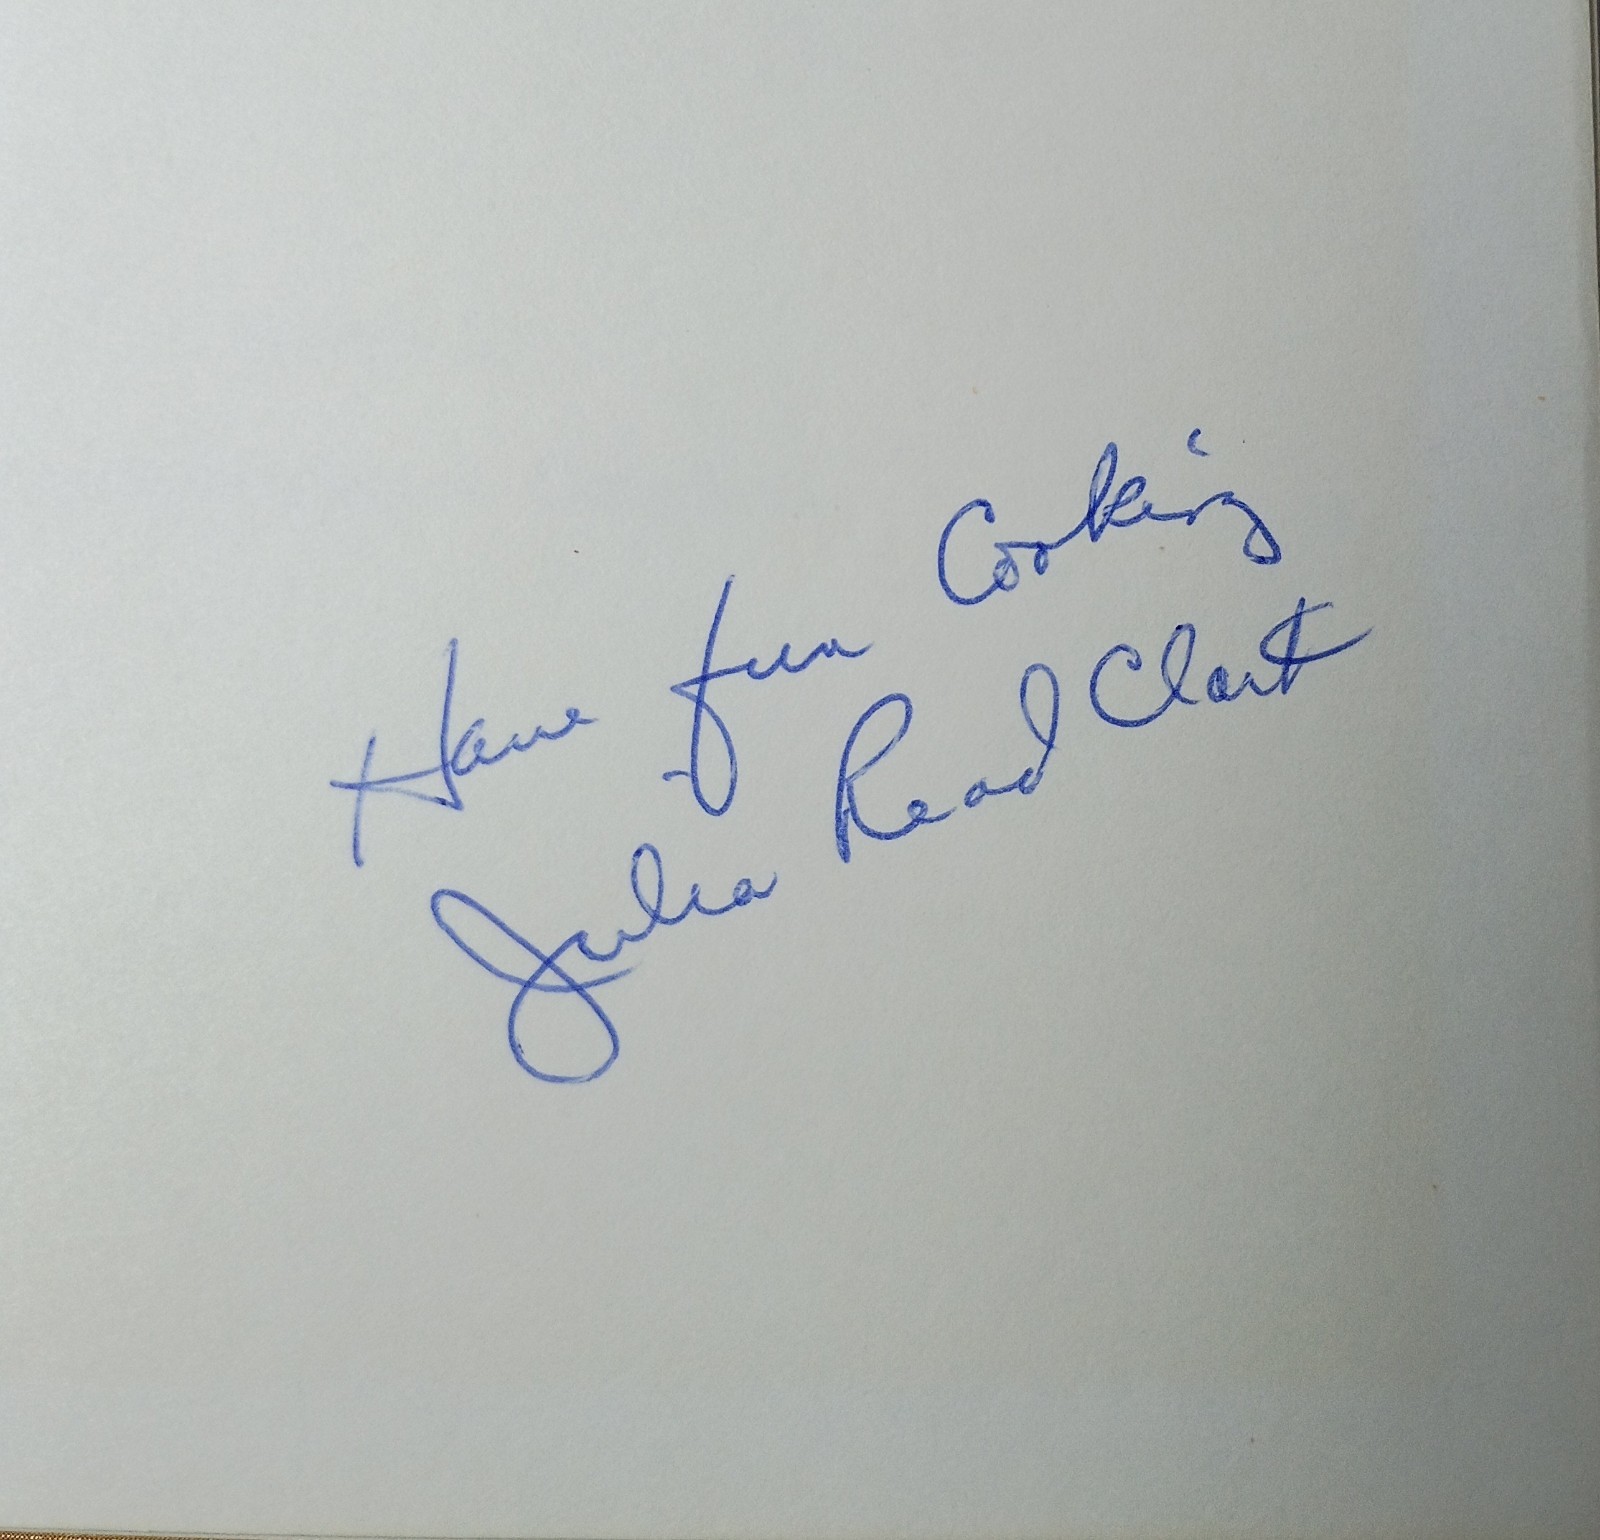 Have fun Cooking
Julia Read Clark